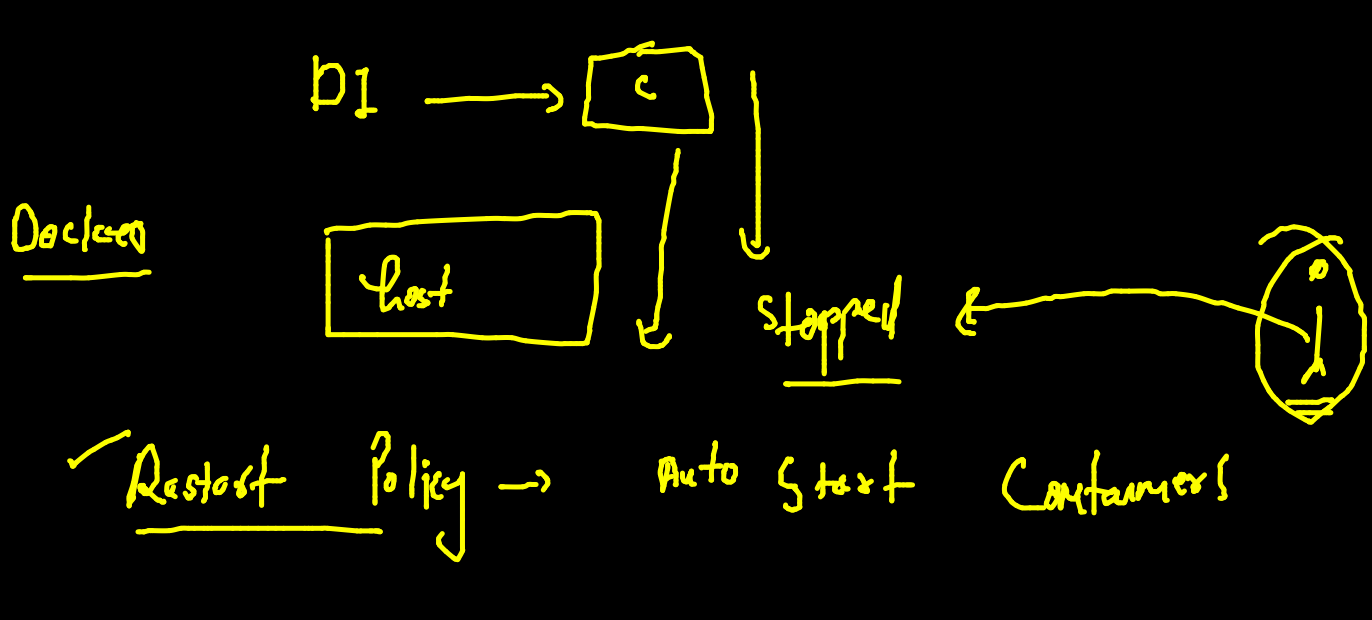 DI → C
Docker
host
Stopped
✓ Restart Policy → Auto Start Containers